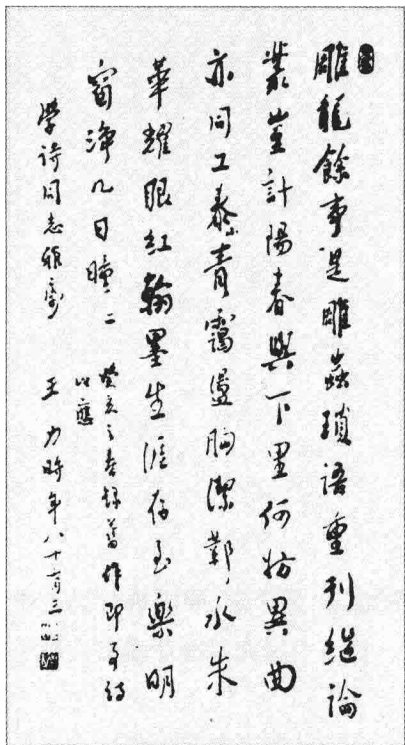 雕龍餘事是雕蟲瑣語重刊繼論
叢豈計陽春與下里何妨異曲
亦同工泰山青靄盪胸潔鄴水朱
華耀眼紅翰墨生涯存至樂明
窗淨几日曈二
癸亥之春録舊作即事詩
以應
學詩同志雅屬 王力時年八十有三